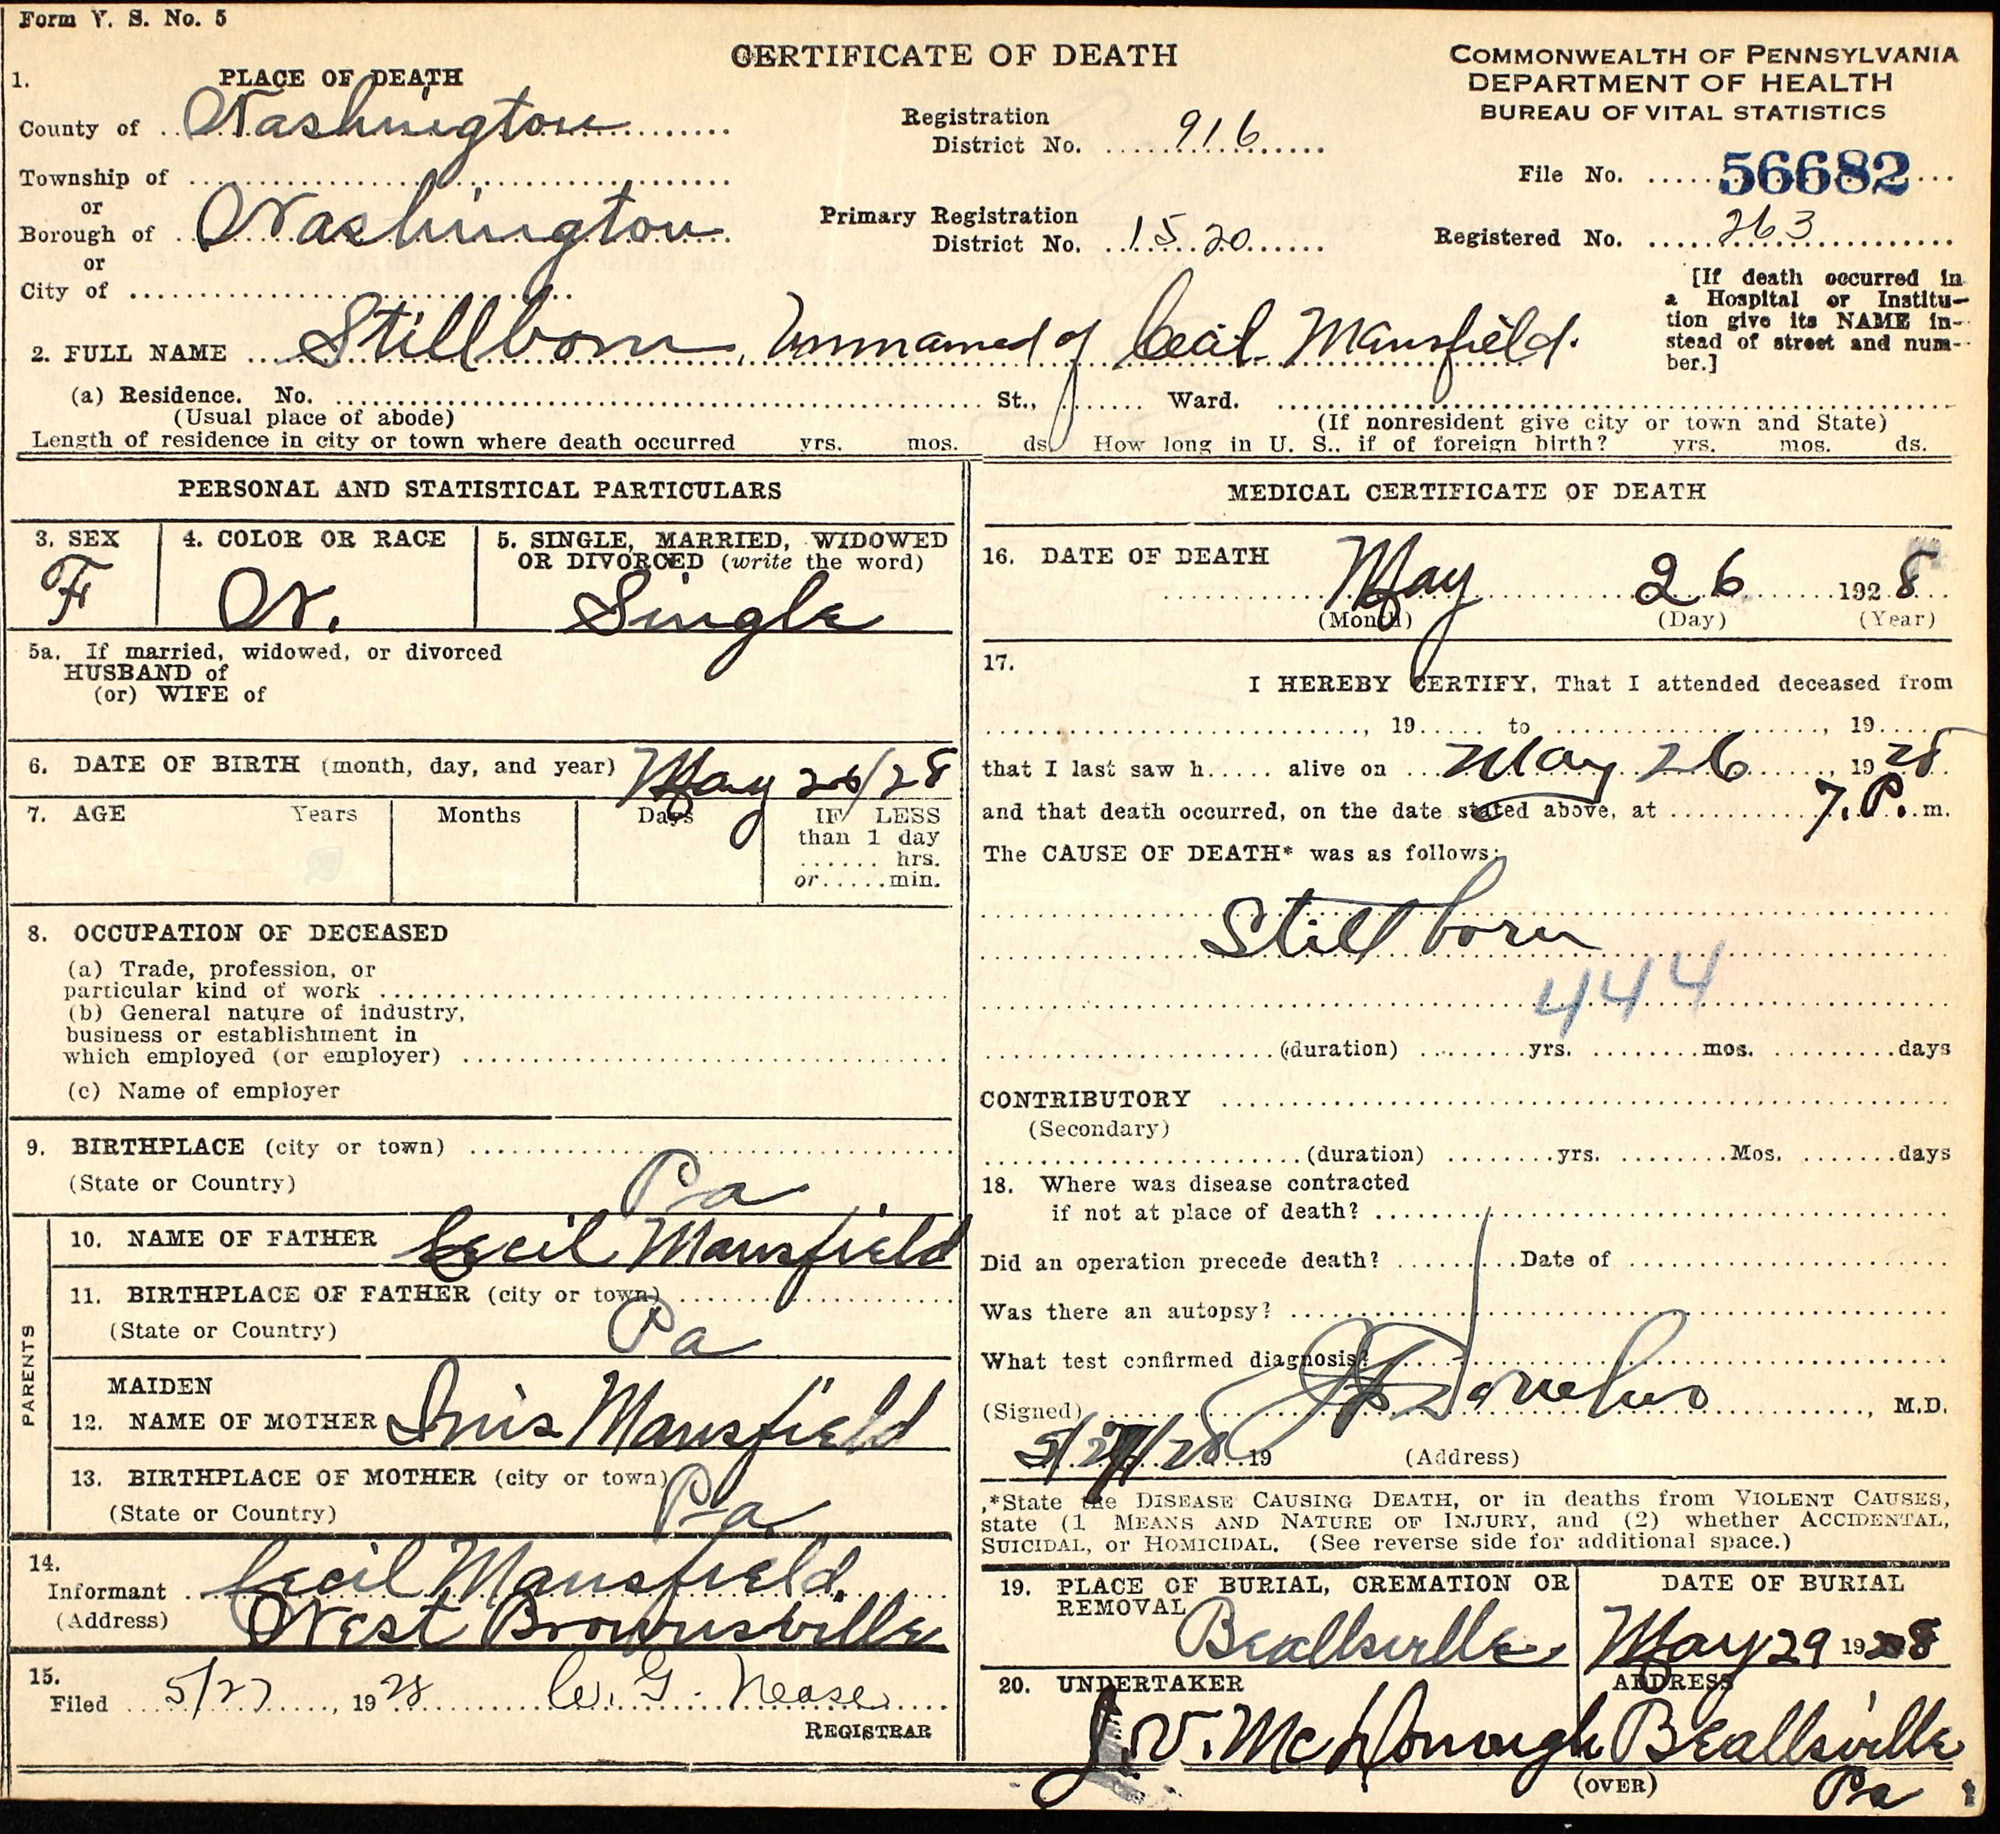 Form V. S. No. 5
CERTIFICATE OF DEATH
COMMONWEALTH OF PENNSYLVANIA
DEPARTMENT OF HEALTH
BUREAU OF VITAL STATISTICS
1. PLACE OF DEATH
County of Washington
Registration District No. 916
File No. 56682
Township of
or
Borough of Washington
Primary Registration District No. 1520
Registered No. 263
or
City of
[If death occurred in
a Hospital or Institu-
tion give its NAME in-
stead of street and num-
ber.]
2. FULL NAME Stillborn, Unnamed of Cecil Mansfield.
(a) Residence. No. St., Ward.
(Usual place of abode) (If nonresident give city or town and State)
Length of residence in city or town where death occurred yrs. mos. ds. How long in U. S., if of foreign birth? yrs. mos. ds.
PERSONAL AND STATISTICAL PARTICULARS
3. SEX
F
4. COLOR OR RACE
W.
5. SINGLE, MARRIED, WIDOWED
OR DIVORCED (write the word)
Single
5a. If married, widowed, or divorced
HUSBAND of
(or) WIFE of
6. DATE OF BIRTH (month, day, and year) May 26/28
7. AGE Years Months Days IF LESS
than 1 day
hrs.
or min.
8. OCCUPATION OF DECEASED
(a) Trade, profession, or
particular kind of work
(b) General nature of industry,
business or establishment in
which employed (or employer)
(c) Name of employer
9. BIRTHPLACE (city or town)
(State or Country) Pa
PARENTS
10. NAME OF FATHER Cecil Mansfield
11. BIRTHPLACE OF FATHER (city or town)
(State or Country) Pa
MAIDEN
12. NAME OF MOTHER Inis Mansfield
13. BIRTHPLACE OF MOTHER (city or town)
(State or Country) Pa.
14.
Informant Cecil Mansfield.
(Address) West Brownsville
15.
Filed 5/27, 1928 W. G. Nease
REGISTRAR
MEDICAL CERTIFICATE OF DEATH
16. DATE OF DEATH
May 26 1928
(Month) (Day) (Year)
17.
I HEREBY CERTIFY, That I attended deceased from
, 19 to , 19
that I last saw h alive on May 26, 1928
and that death occurred, on the date stated above, at 7.P.m.
The CAUSE OF DEATH* was as follows:
Still born
444
(duration) yrs. mos. days
CONTRIBUTORY
(Secondary)
(duration) yrs. Mos. days
18. Where was disease contracted
if not at place of death?
Did an operation precede death? Date of
Was there an autopsy?
What test confirmed diagnosis?
(Signed) , M.D.
5/27/28 19 (Address)
*State the DISEASE CAUSING DEATH, or in deaths from VIOLENT CAUSES,
state (1 MEANS AND NATURE OF INJURY, and (2) whether ACCIDENTAL,
SUICIDAL, or HOMICIDAL. (See reverse side for additional space.)
19. PLACE OF BURIAL, CREMATION OR
REMOVAL
Beallsville
DATE OF BURIAL
May 29 1928
20. UNDERTAKER
J. V. McDonough
ADDRESS
Beallsville
Pa
(OVER)